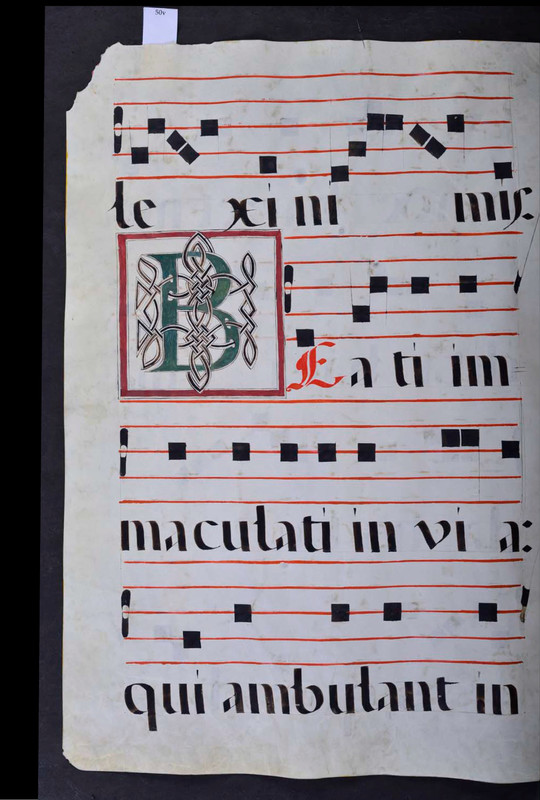 50v
le xi ni mis:
BEa ti im
maculati in vi a:
qui ambulant in